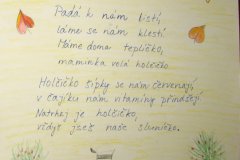 Padá k nám listí,
láme se nám klestí.
Máme doma teplíčko,
maminka volá holčičko
Holčičko šípky se nám červenají
v čajíku nám vitamíny přinášejí.
Natrhej je holčičko,
vždyť jseš naše sluníčko.